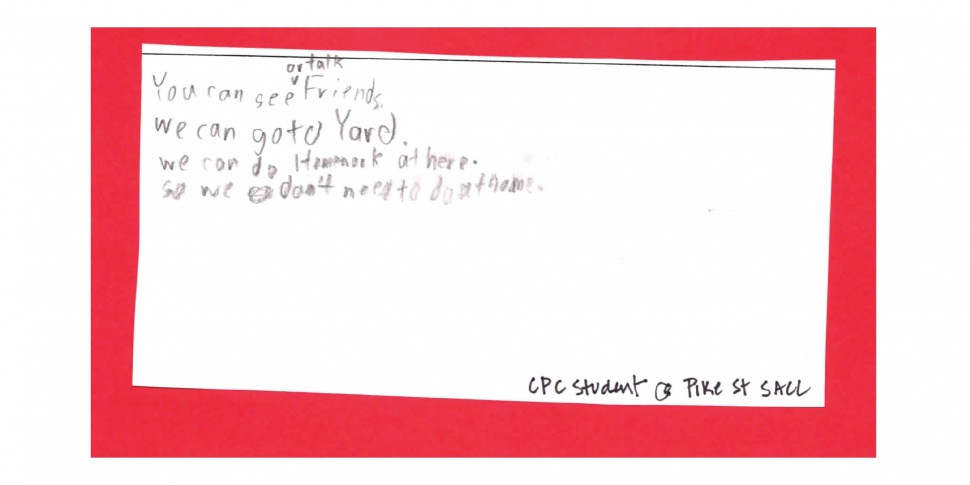 or talk
You can see Friends.
we can go to Yard.
we can do Homework at here.
so we don't need to do at home.
CPC student @ Pike St SACC